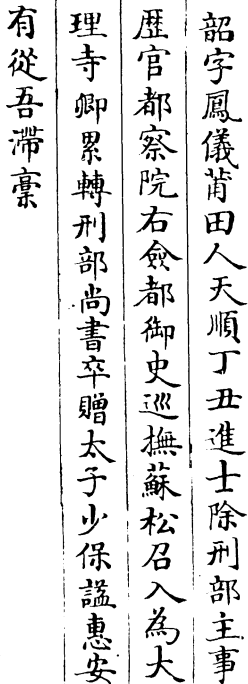 韶字鳳儀莆田人天順丁丑進士除刑部主事
歷官都察院右僉都御史巡撫蘇松召入為大
理寺卿累轉刑部尚書卒贈太子少保謚惠安
有從吾滯稾